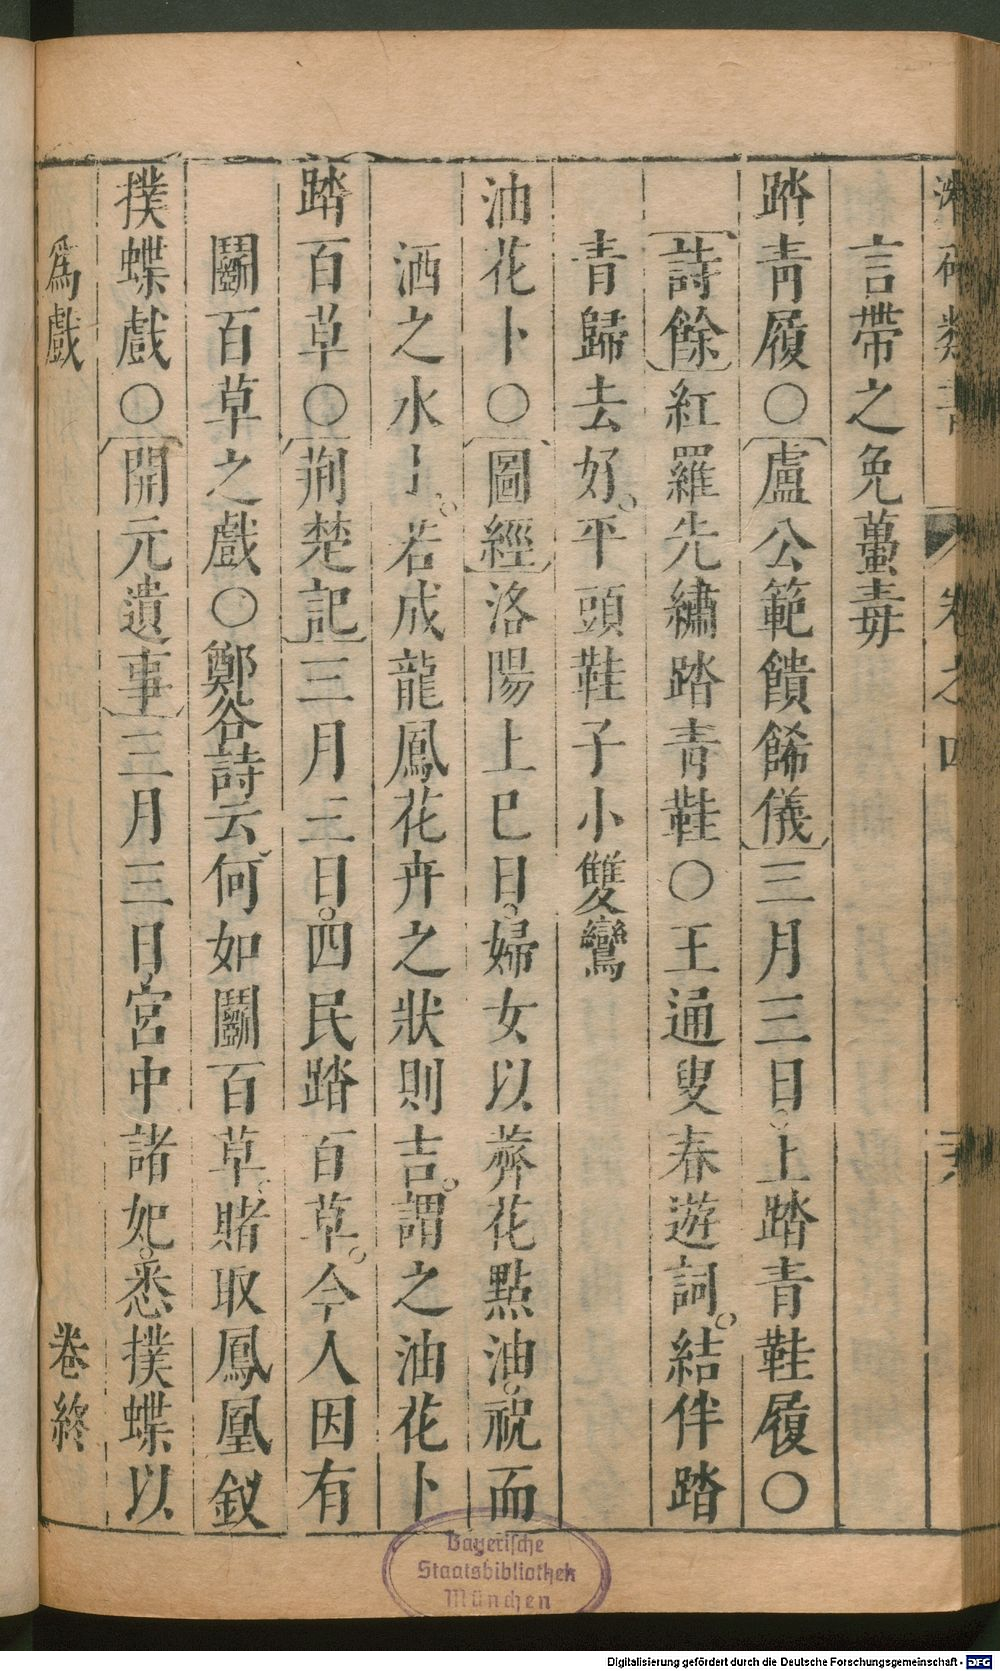 卷之四
言帶之免蠆毒
踏靑履○盧公範饋餙儀三月三日。上踏青鞋履○
詩餘紅羅先繡踏青鞋○王通叟春遊詞。結伴踏
青歸去好。平頭鞋子小雙鸞
油花卜○圖經洛陽上巳日。婦女以薺花點油。祝而
洒之水上。若成龍鳳花卉之狀則吉。謂之油花卜
踏百草○荊楚記三月三日。四民踏百草。今人因有
鬬百草之戲○鄭谷詩云何如鬬百草。賭取鳳凰釵
撲蝶戲○開元遺事三月三日宮中諸妃。悉撲蝶以
爲戲 卷終
Bayerische
Staatsbibliothek
München
Digitalisierung gefördert durch die Deutsche Forschungsgemeinschaft - DFG